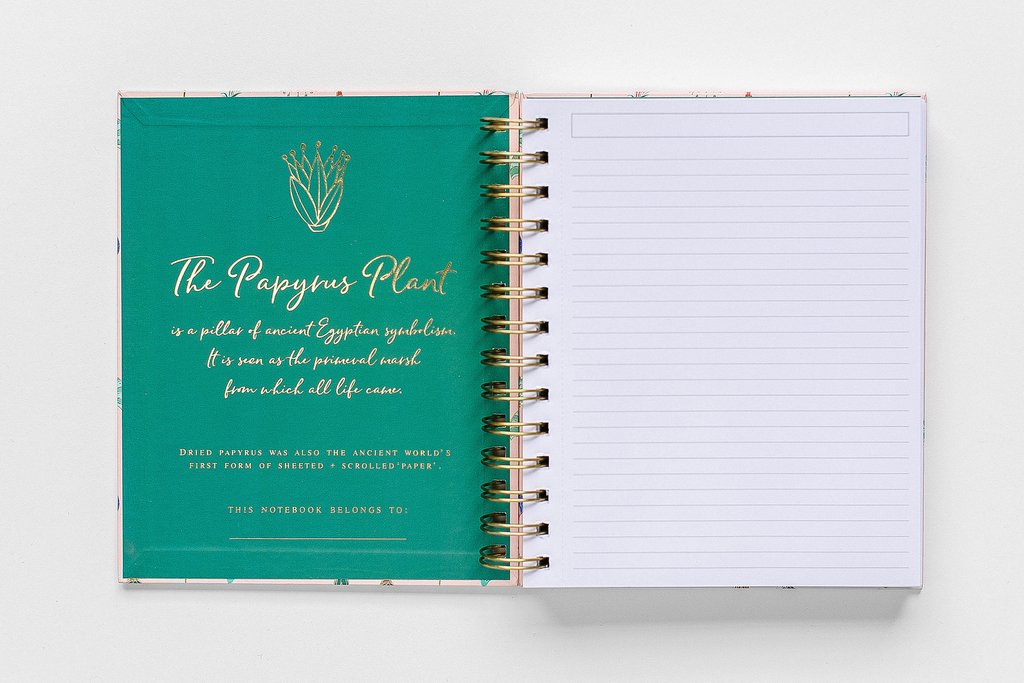 The Papyrus Plant
is a pillar of ancient Egyptian symbolism.
It is seen as the primeval marsh
from which all life came.
DRIED PAPYRUS WAS ALSO THE ANCIENT WORLD'S
FIRST FORM OF SHEETED + SCROLLED 'PAPER'.
THIS NOTEBOOK BELONGS TO: